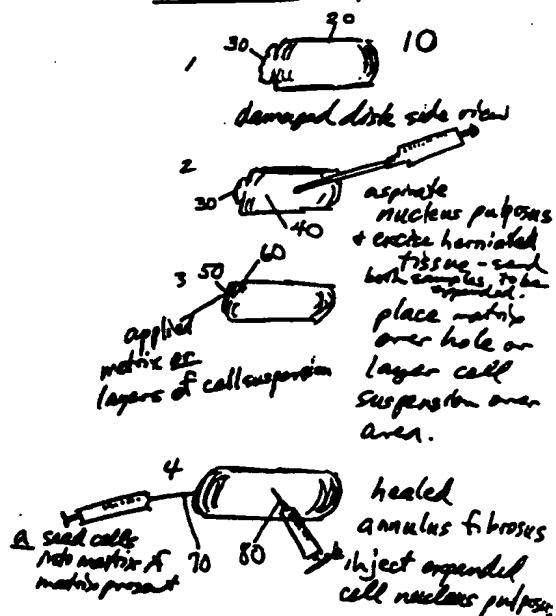 20
30
10
1
damaged disk side view
2
30
40
aspirate
nucleus pulposus
+ excise herniated
tissue - send
both samples to be
expanded.
60
3 50
applied
matrix or
layers of cell suspension
place matrix
over hole or
layer cell
suspension over
area.
4
70
80
a seed cells
into matrix if
matrix present
healed
annulus fibrosus
inject expanded
cell nucleus pulposus